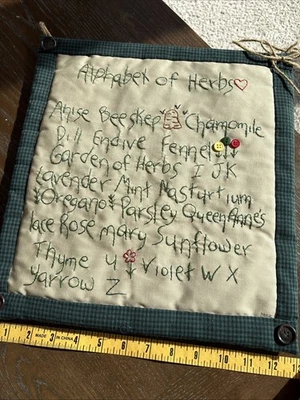 Alphabet of Herbs
Anise Beeskep Chamomile
Dill Endive Fennel
Garden of Herbs I J K
lavender Mint Nasturtium
Oregano Parsley Queen Anne's
lace Rosemary Sunflower
Thyme U Violet W X
Yarrow Z
1 2 MADE IN CHINA 3 4 5 6 7 8 9 10 11 12